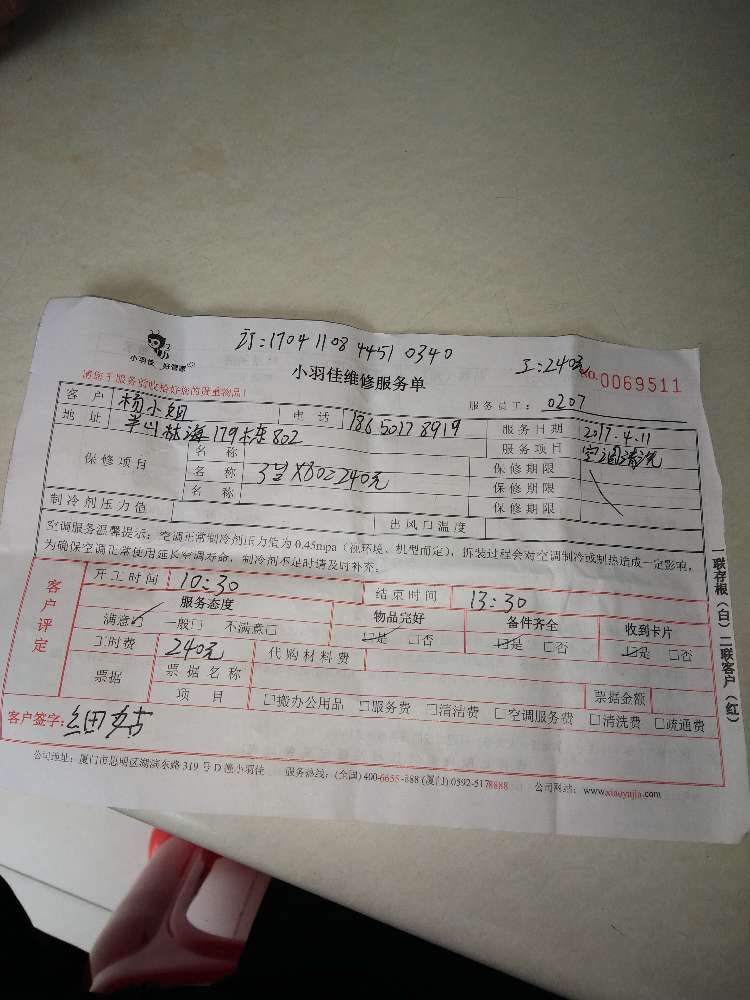 订:1704 1108 4451 0340
工:240元
小羽佳 好管家
小羽佳维修服务单
NO.0069511
请您于服务前收拾好您的贵重物品!
服务员工: 0207
客户 杨小姐 电话 18650178919 服务日期 2017.4.11
地址 半山林海179栋802 服务项目 空调清洗
保修项目
名称 保修期限
名称 3台X80=240元 保修期限
名称 保修期限
制冷剂压力值 出风口温度
空调服务温馨提示:空调正常制冷剂压力值为0.45mpa(视环境、机型而定),拆装过程会对空调制冷或制热造成一定影响,
为确保空调正常使用延长空调寿命,制冷剂不足时请及时补充。
客户评定
开工时间 10:30 结束时间 13:30
服务态度 物品完好 备件齐全 收到卡片
满意□ 一般□ 不满意□ □是 □否 □是 □否 □是 □否
工时费 240元 代购材料费
票据 票据名称 票据金额
项目 □搬办公用品 □服务费 □清洁费 □空调服务费 □清洗费 □疏通费
客户签字:
公司地址:厦门市思明区湖滨东路319号D幢小羽佳 服务热线:(全国)400-6655-888 (厦门)0592-5178888 公司网站:www.xiaoyujia.com
联存根(白)二联客户(红)